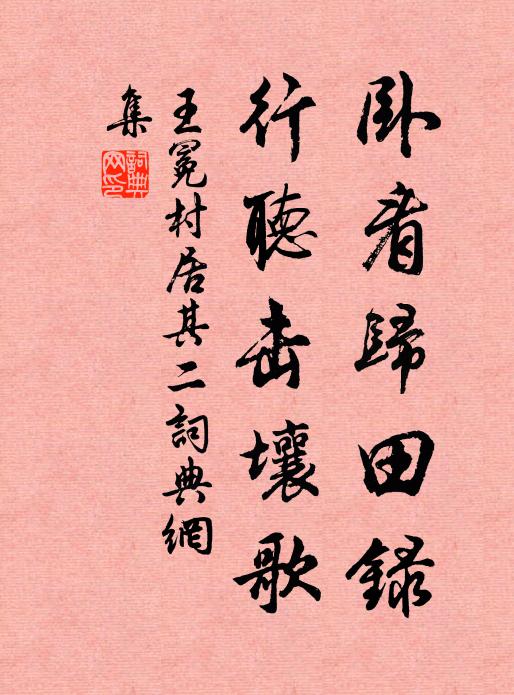 卧看歸田録
行聽击壤歌
王冕村居其二詞典網
集
詞典
网印